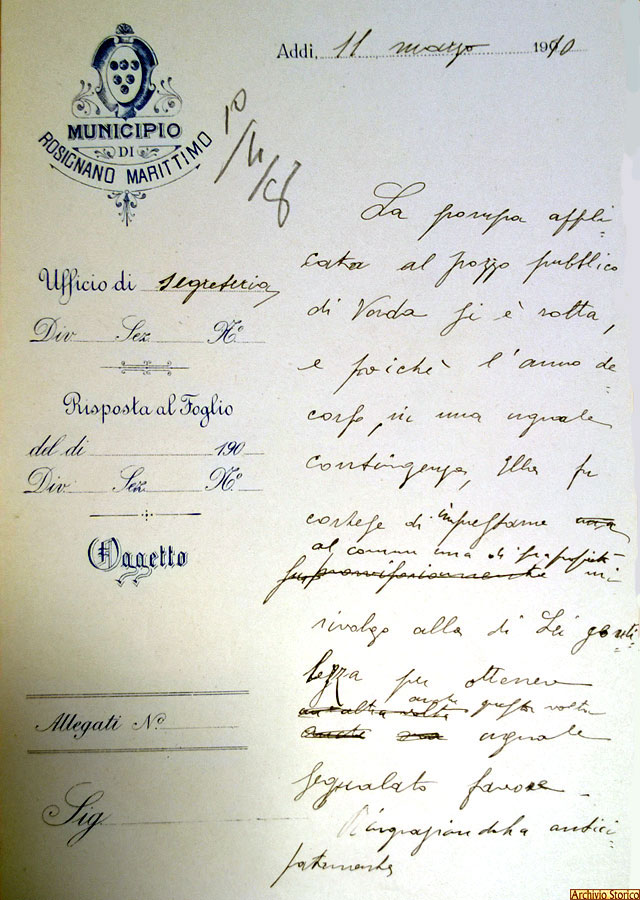 Addì, 11 marzo 1910
MUNICIPIO
DI
ROSIGNANO MARITTIMO
10/4/8
Ufficio di segreteria
Div. Sez. N.º
Risposta al Foglio
del dì 190
Div. Sez. N.º
Oggetto
Allegati N.º
Sig.
La pompa appli=
cata al pozzo pubblico
di Vada si è rotta,
e poichè l'anno de
corso, in una uguale
contingenza, Ella fu
cortese di imprestarne una
al comune una di sua proprietà
provvisoriamente mi
rivolgo alla di Lei genti
lezza per ottenere
un'altra volta anche questa volta
uguale
segnalato favore.
Ringraziandola antici=
patamente
Archivio Storico